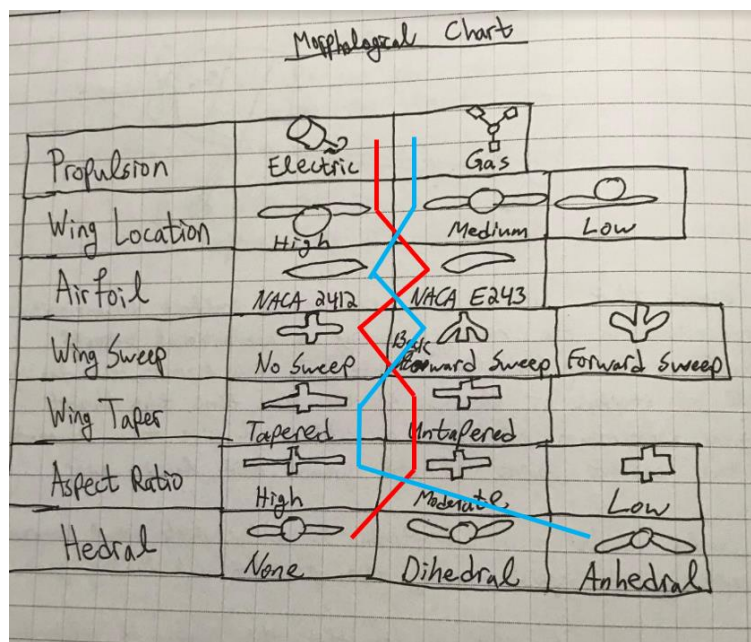 Morphological Chart
Propulsion Electric Gas
Wing Location High Medium Low
Airfoil NACA 2412 NACA E243
Wing Sweep No Sweep Backward Sweep Forward Sweep
Wing Taper Tapered Untapered
Aspect Ratio High Moderate Low
Hedral None Dihedral Anhedral